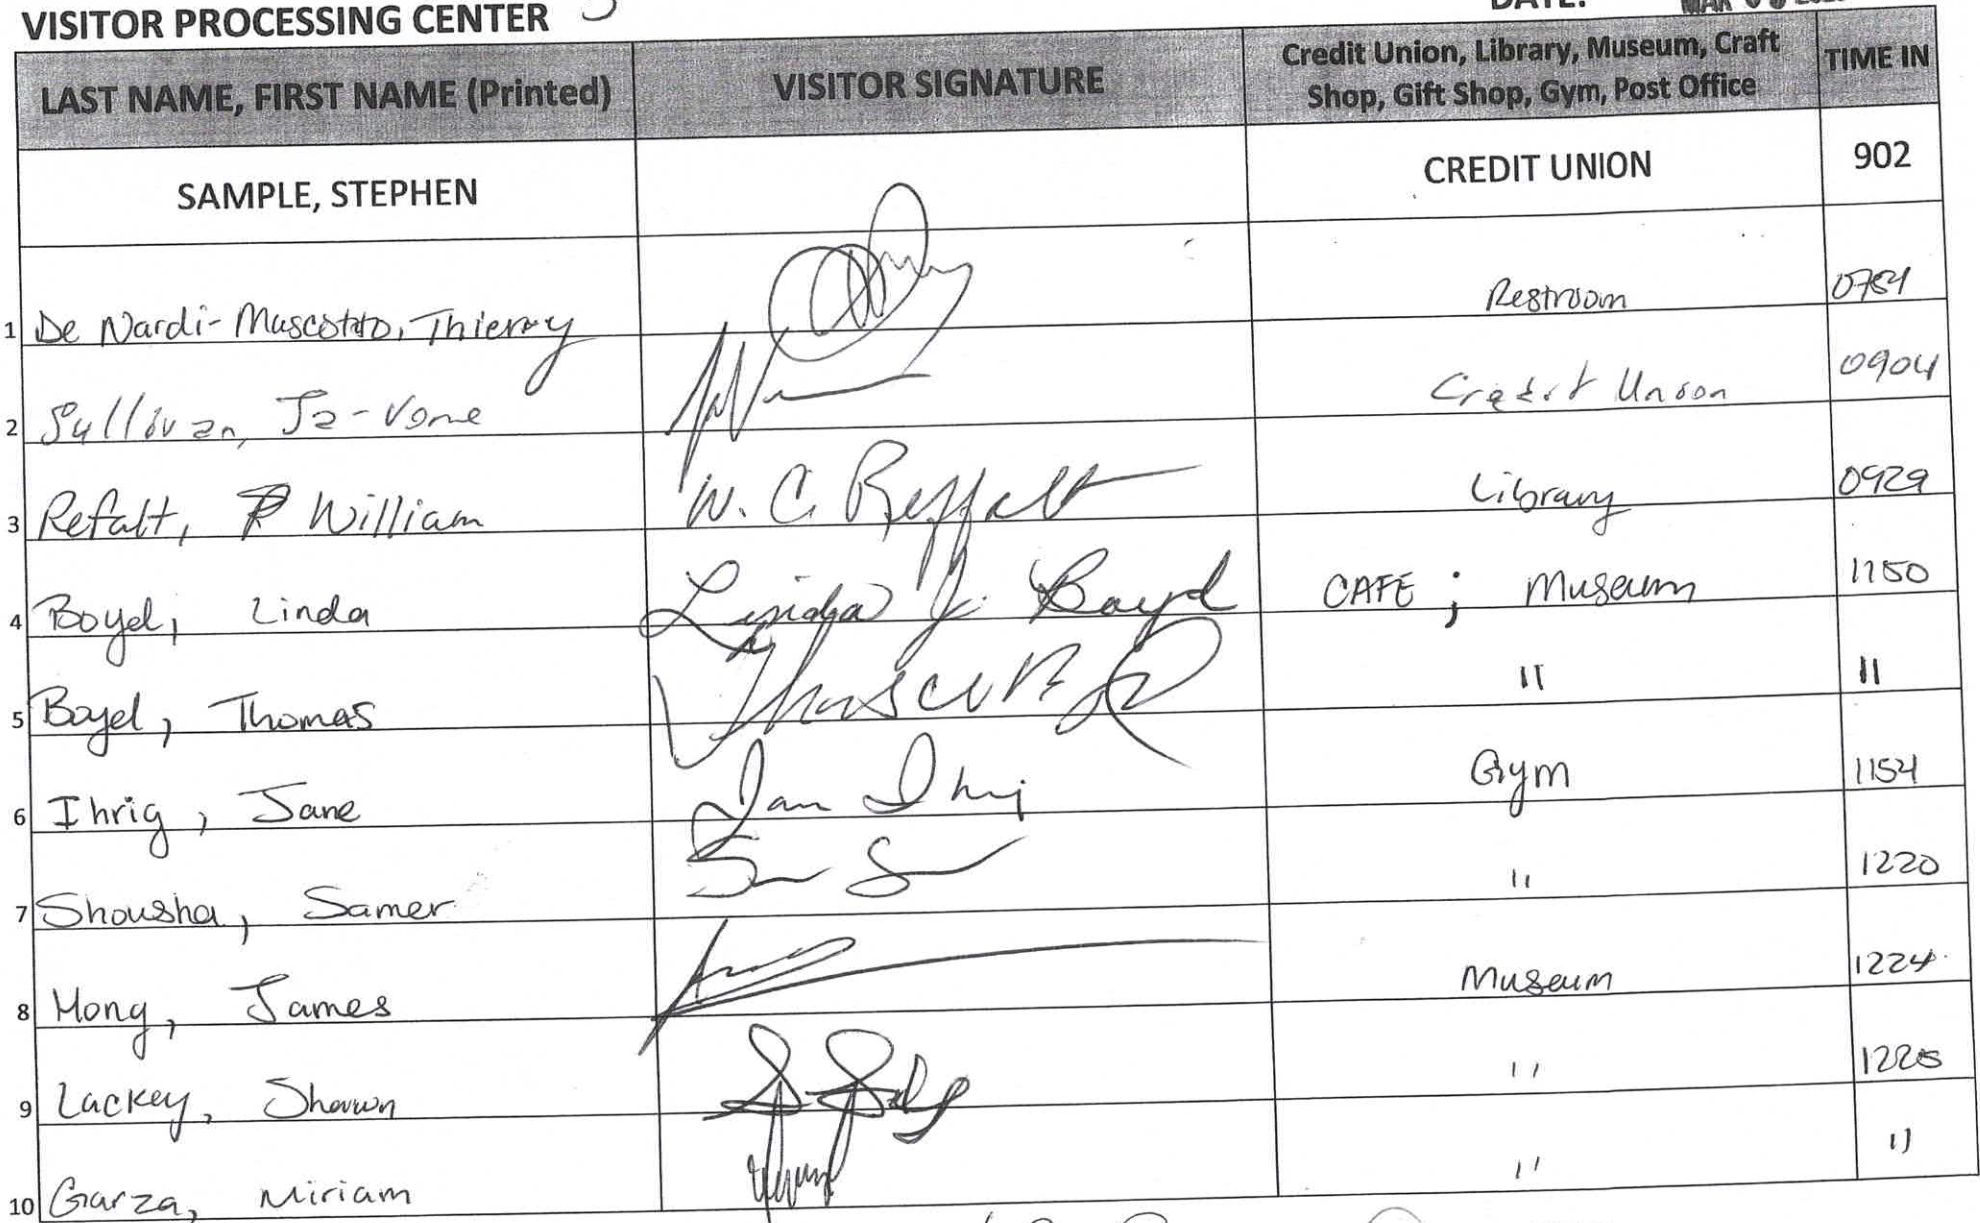 VISITOR PROCESSING CENTER DATE: MAR
LAST NAME, FIRST NAME (Printed) VISITOR SIGNATURE Credit Union, Library, Museum, Craft Shop, Gift Shop, Gym, Post Office TIME IN
SAMPLE, STEPHEN CREDIT UNION 902
1 De Nardi-Muscotto, Thierry Restroom
2 Sullivan, Ja-Vone Credit Union 0904
3 Refalt, William W. C. Reffalt Library 0929
4 Boyd, Linda Linda J. Boyd CAFE ; Museum 1150
5 Boyd, Thomas " "
6 Ihrig, Jane Jane Ihrig Gym 1154
7 Shousha, Samer " 1220
8 Hong, James Museum 1224
9 Lackey, Shawn " 1225
10 Garza, Miriam " "